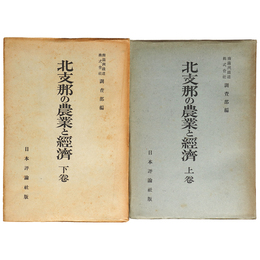 調査部編
北支那の農業と經濟
下卷
日本評論社版
調査部編
北支那の農業と經濟
上卷
日本評論社版